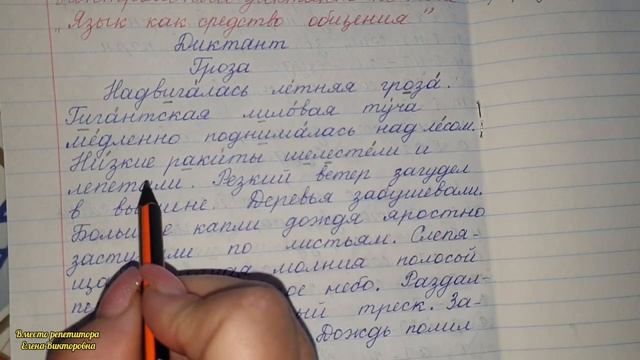 "Язык как средство общения"
Диктант
Гроза
Надвига́лась ле́тняя гроза́.
Гига́нтская лило́вая ту́ча
ме́дленно поднима́лась над ле́сом.
Ни́зкие раки́ты шелесте́ли и
лепетали. Резкий ветер загудел
в Деревья забушевали.
капли дождя яростно
по листьям. Слепя-
молния полосой
небо. Раздал-
треск. За-
Дождь полил
Вместо репетитора
Елена Викторовна